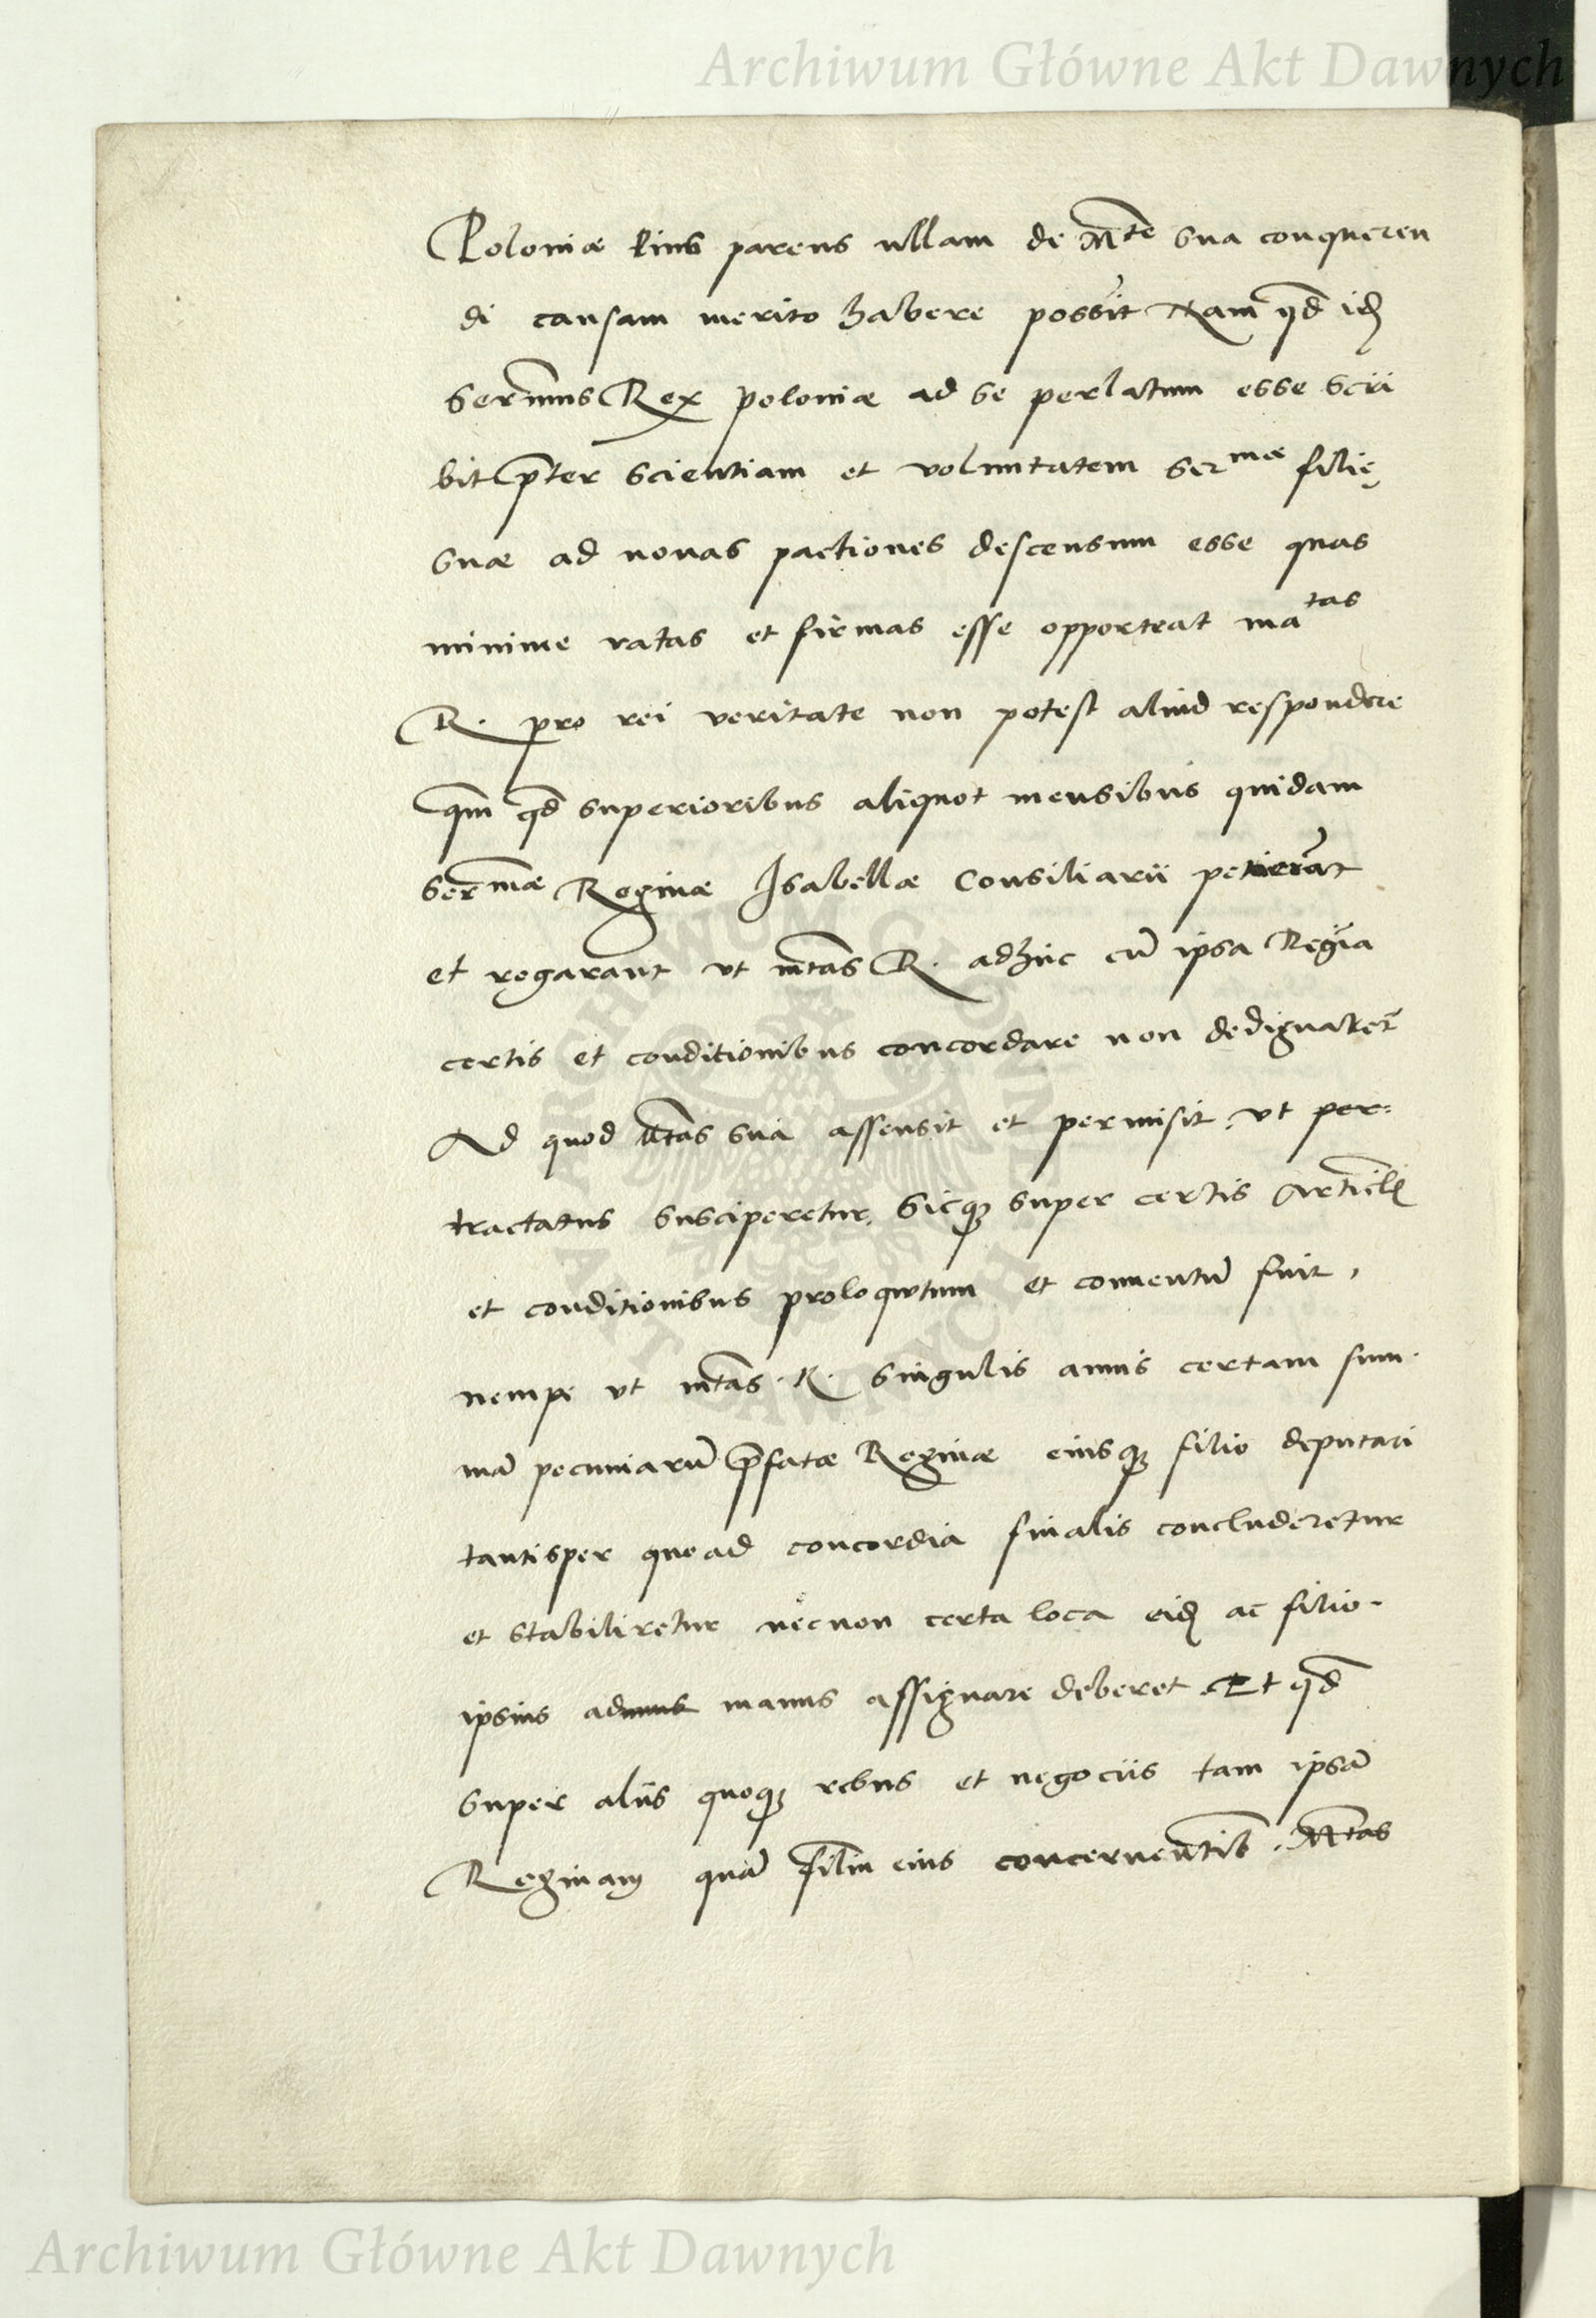 Archiwum Główne Akt Dawnych
Poloniæ Eius parens ullam de Mte sua conqueren
di causam merito habere possit Nam qd id
Sermus Rex poloniæ ad se perlatum esse scri
bit pter scientiam et voluntatem sermæ filię
suæ ad nouas pactiones descensum esse quas
minime ratas et firmas esse opporteat matas
R. pro rei veritate non potest aliud respondere
qm qd superioribus aliquot mensibus quidam
Sermæ Reginæ Isabellæ Consiliarii petierāt
et rogarant vt mtas R. adhuc cū ipsa Regīa
certis et conditionibus concordare non dedignaret
Ad quod Mtas sua assensit et permisit, vt per:
tractatus susciperetur, Sicq super certis Articlis
et conditionibus proloqutum et conuentū fuit,
nempe vt mtas. R. singulis annis certam sum-
mā pecuniarū pfatæ Reginæ eiusq filio deputari
tantisper quoad concordia finalis concluderetur
et stabiliretur necnon certa loca eid ac filio-
ipsius ad manus assignare deberet. Et qd
super aliis quoq rebus et negociis tam ipsā
Reginam quā filiū eius concernentib. Mtas
ARCHIWUM GŁÓWNE
AKT DAWNYCH
Archiwum Główne Akt Dawnych